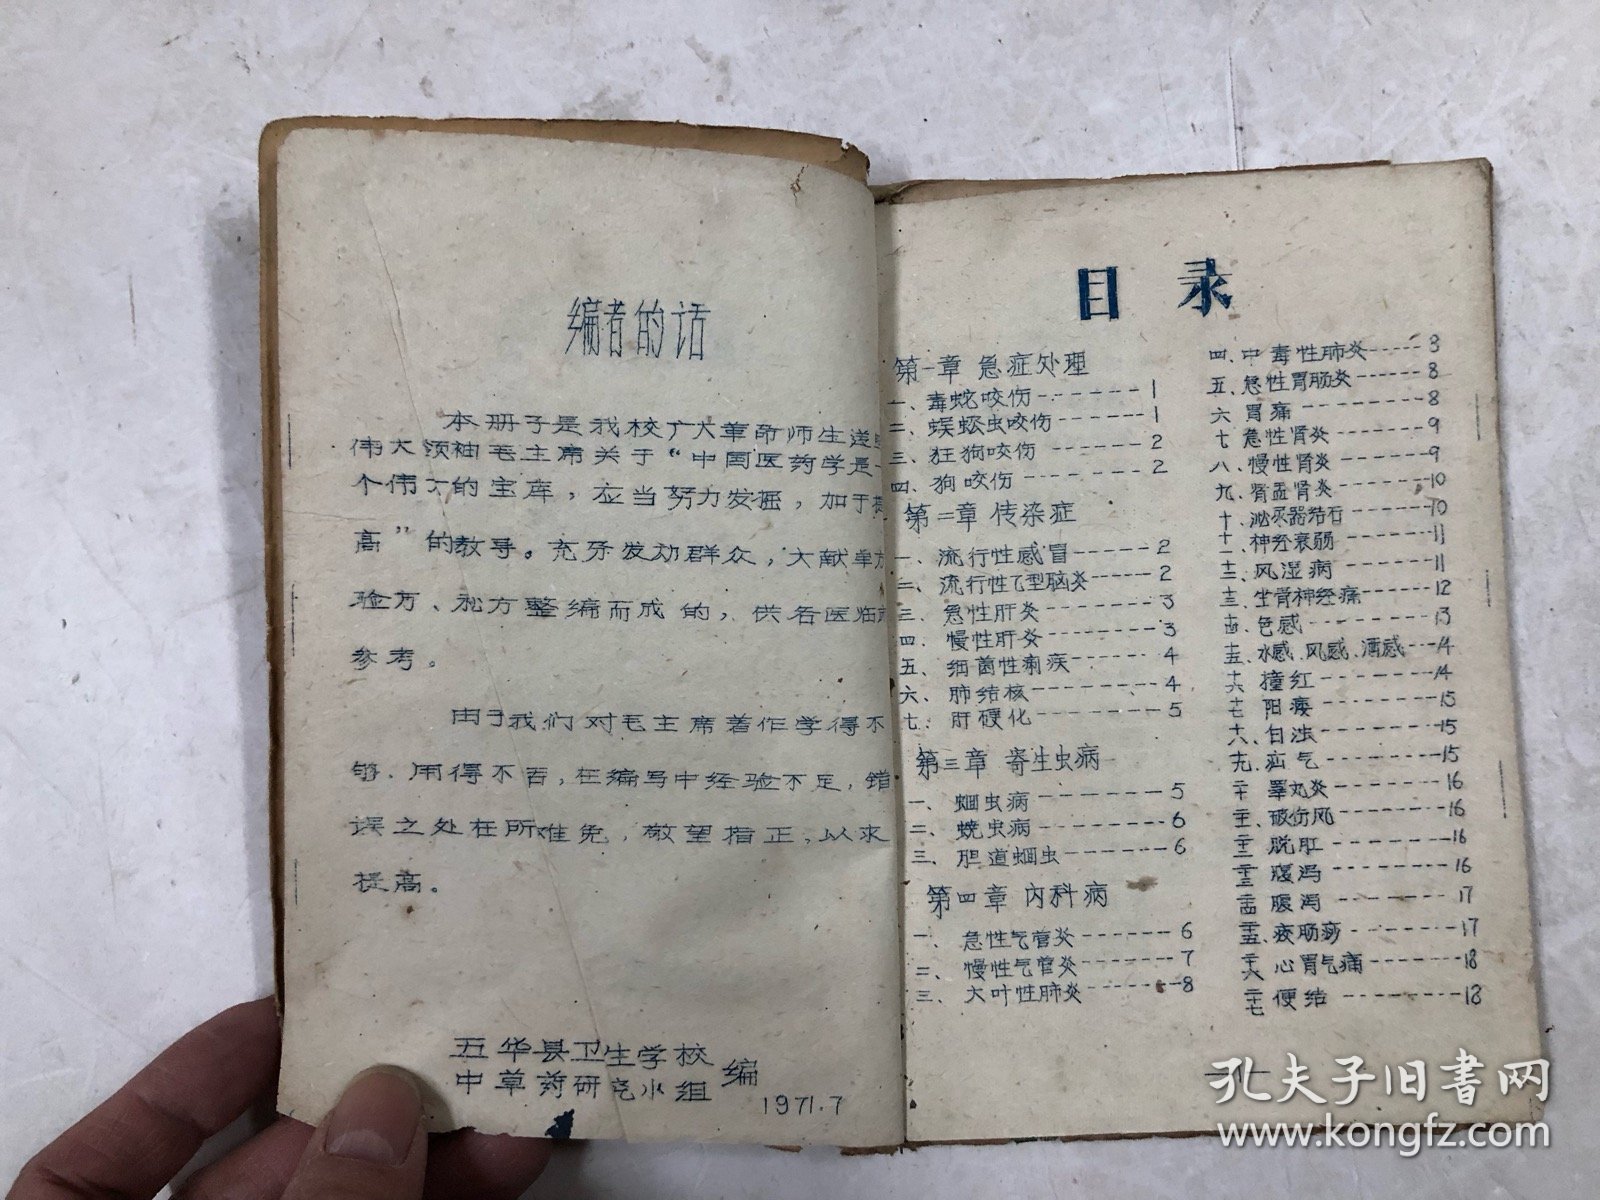 编者的话
本册子是我校广大革命师生遵
伟大领袖毛主席关于“中国医药学是一
个伟大的宝库，应当努力发掘，加于提
高”的教导。充分发动群众，大献单方
验方、秘方整编而成的，供各医临
参考。
由于我们对毛主席著作学得不
够，用得不好，在编写中经验不足，错
误之处在所难免，敬望指正，以求
提高。
五华县卫生学校
中草药研究小组 编
1971.7
目录
第一章 急症处理
一、毒蛇咬伤------1
二、蜈蚣虫咬伤------1
三、狂狗咬伤------2
四、狗咬伤------2
第二章 传染症
一、流行性感冒------2
二、流行性乙型脑炎------2
三、急性肝炎------3
四、慢性肝炎------3
五、细菌性痢疾------4
六、肺结核------4
七、肝硬化------5
第三章 寄生虫病
一、蛔虫病------5
二、蛲虫病------6
三、胆道蛔虫------6
第四章 内科病
一、急性气管炎------6
二、慢性气管炎------7
三、大叶性肺炎------8
四、中毒性肺炎------8
五、急性胃肠炎------8
六、胃痛------8
七、急性肾炎------9
八、慢性肾炎------9
九、肾盂肾炎------10
十、泌尿器结石------10
十一、神经衰弱------11
十二、风湿病------11
十三、坐骨神经痛------12
十四、色感------13
十五、水感、风感、酒感---14
十六、撞红------14
十七、阳痿------15
十八、白浊------15
十九、疝气------15
二十、睾丸炎------16
二十一、破伤风------16
二十二、脱肛------16
二十三、腹泻------16
二十四、腹泻------17
二十五、疲肠痧------17
二十六、心胃气痛------18
二十七、便结------18
—1—
孔夫子旧书网
www.kongfz.com